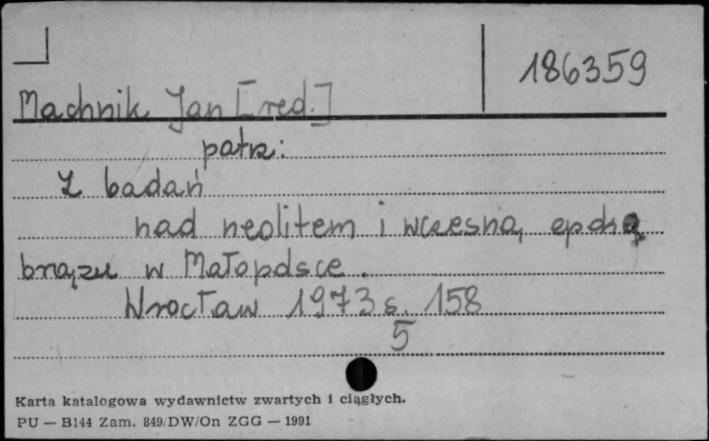 186359
Machnik Jan [red.]
patrz:
Z badań
nad neolitem i wczesną epoką
brązu w Małopolsce.
Wrocław 1973 s. 158
5
Karta katalogowa wydawnictw zwartych i ciągłych.
PU — B144 Zam. 849/DW/On ZGG — 1991